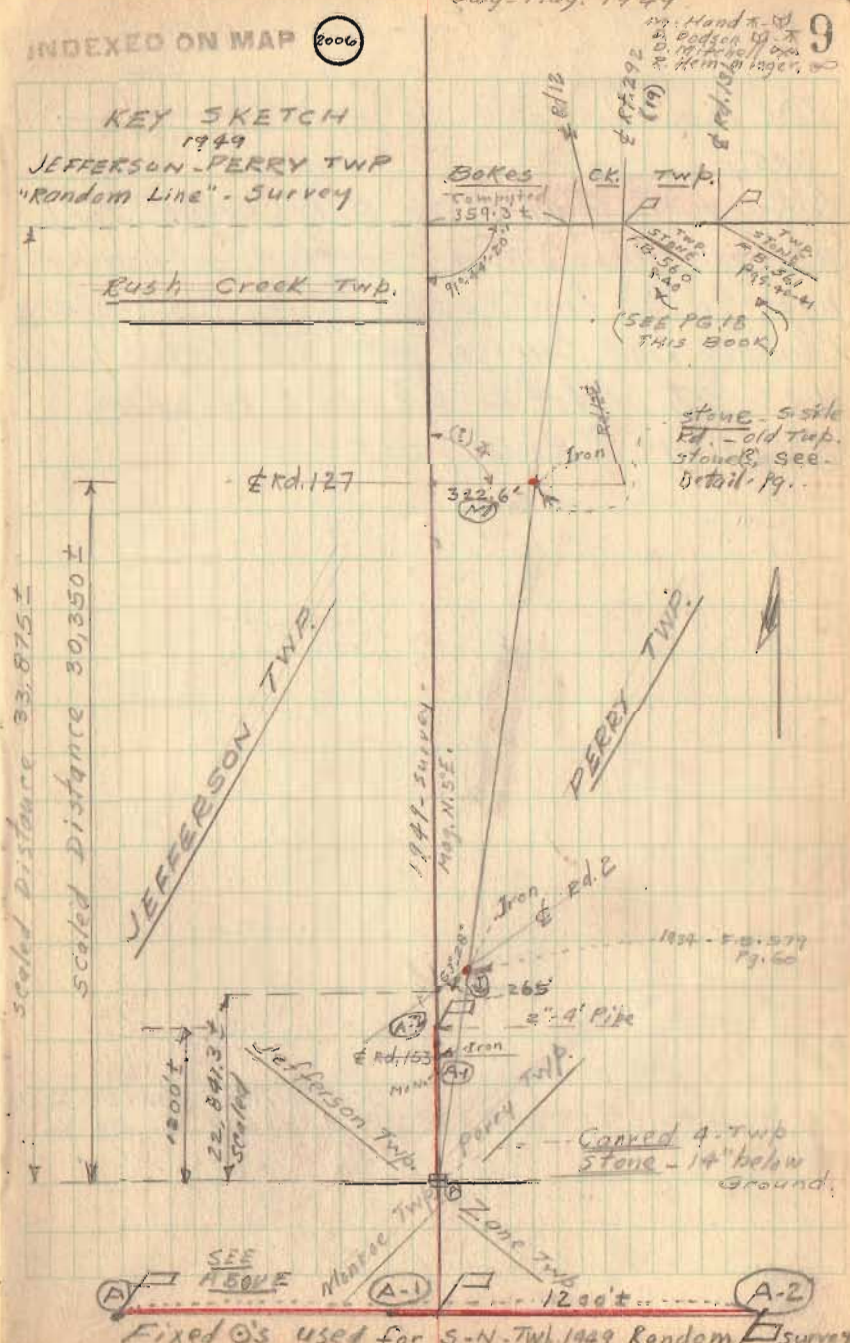 INDEXED ON MAP 2006
9
M. Hand
D. Dodson
D. Mitchell
R. Hemminger
KEY SKETCH
1949
JEFFERSON-PERRY TWP
"Random Line" - Survey
℄ Rd 12
℄ Rt. 292
(19)
℄ Rd. 131
Bokes CK. Twp.
Computed
359.3 ±
TWP. STONE
F.B. 560
P. 40
TWP. STONE
F.B. 561
Pgs. 40-41
(SEE PG. 18
THIS BOOK)
Rush Creek Twp.
stone - S. side
Rd. - old Twp.
stone, see
Detail - Pg..
Iron
℄ Rd. 127
322.6'
(M)
scaled Distance 33,875 ±
scaled Distance 30,350 ±
JEFFERSON TWP.
PERRY TWP.
1949 - survey -
Mag. N. 5° E.
Iron
℄ Rd. 2
1934 - F.B. 579
Pg. 60
265'
A-2
2" - 4' Pipe
℄ Rd. 153
Iron
A-1
MON.
1200' ±
22,841.3 ±
scaled
Jefferson Twp.
Perry Twp.
Carved 4-Twp
stone - 14" below
Ground.
Monroe Twp.
Zane Twp.
SEE
ABOVE
A
A-1
1200' ±
A-2
Fixed ⊙'s used for S-N-Twl. 1949 Random survey